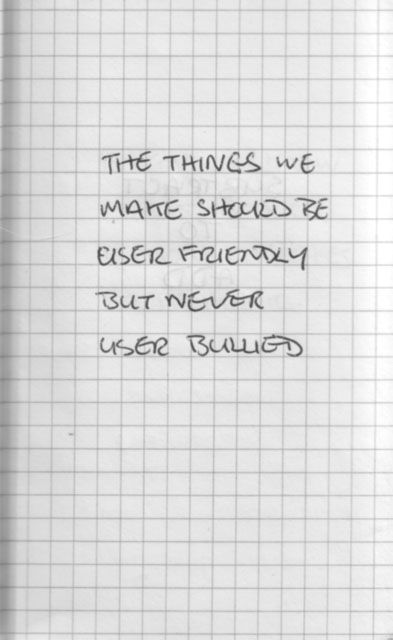 THE THINGS WE
MAKE SHOULD BE
USER FRIENDLY
BUT NEVER
USER BULLIED